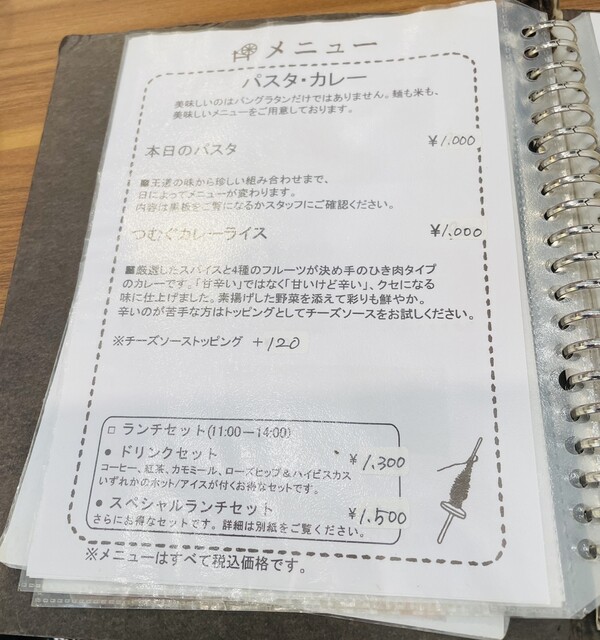 メニュー
パスタ・カレー
美味しいのはパングラタンだけではありません。麺も米も、
美味しいメニューをご用意しております。
本日のパスタ ¥1.000
■王道の味から珍しい組み合わせまで、
日によってメニューが変わります。
内容は黒板をご覧になるかスタッフにご確認ください。
つむぐカレーライス ¥1.000
■厳選したスパイスと4種のフルーツが決め手のひき肉タイプ
のカレーです。「甘辛い」ではなく「甘いけど辛い」、クセになる
味に仕上げました。素揚げした野菜を添えて彩りも鮮やか。
辛いのが苦手な方はトッピングとしてチーズソースをお試しください。
※チーズソーストッピング +120
□ ランチセット(11:00ー14:00)
● ドリンクセット ¥1.300
コーヒー、紅茶、カモミール、ローズヒップ&ハイビスカス
いずれかのホット/アイスが付くお得なセットです。
● スペシャルランチセット ¥1.500
さらにお得なセットです。詳細は別紙をご覧ください。
※メニューはすべて税込価格です。